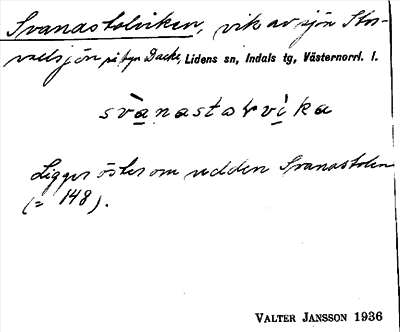 Svanastolviken, vik av sjön Stor-
vadsjön på byn Backe, Lidens sn, Indals tg, Västernorrl. l.
svànastoɽvìka
Ligger öster om udden Svanastolen
(= 148).
VALTER JANSSON 1936